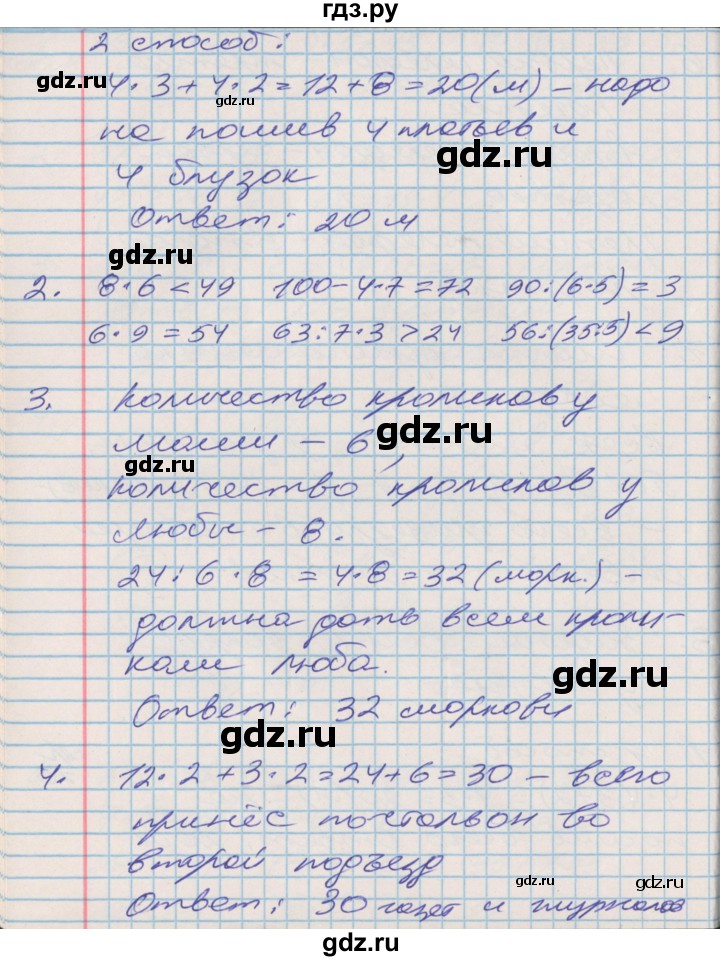 гдз.ру
2 способ:
4·3+4·2=12+8=20(м) – надо
на пошив 4 платьев и
4 блузок
Ответ: 20 м
2. 8·6<49 100–4·7=72 90:(6·5)=3
6·9=54 63:7·3>24 56:(35:5)<9
3. Количество кроликов у
Маши – 6,
Количество кроликов у
Любы – 8.
24:6·8=4·8=32(морк.) –
должна дать всем кроли-
кам Люба.
Ответ: 32 моркови
4. 12·2+3·2=24+6=30 – всего
принёс почтальон во
второй подъезд
Ответ: 30 газет и журналов
gdz.ru
gdz.ru
gdz.ru
gdz.ru
gdz.ru
gdz.ru
gdz.ru
gdz.ru
gdz.ru
gdz.ru
gdz.ru